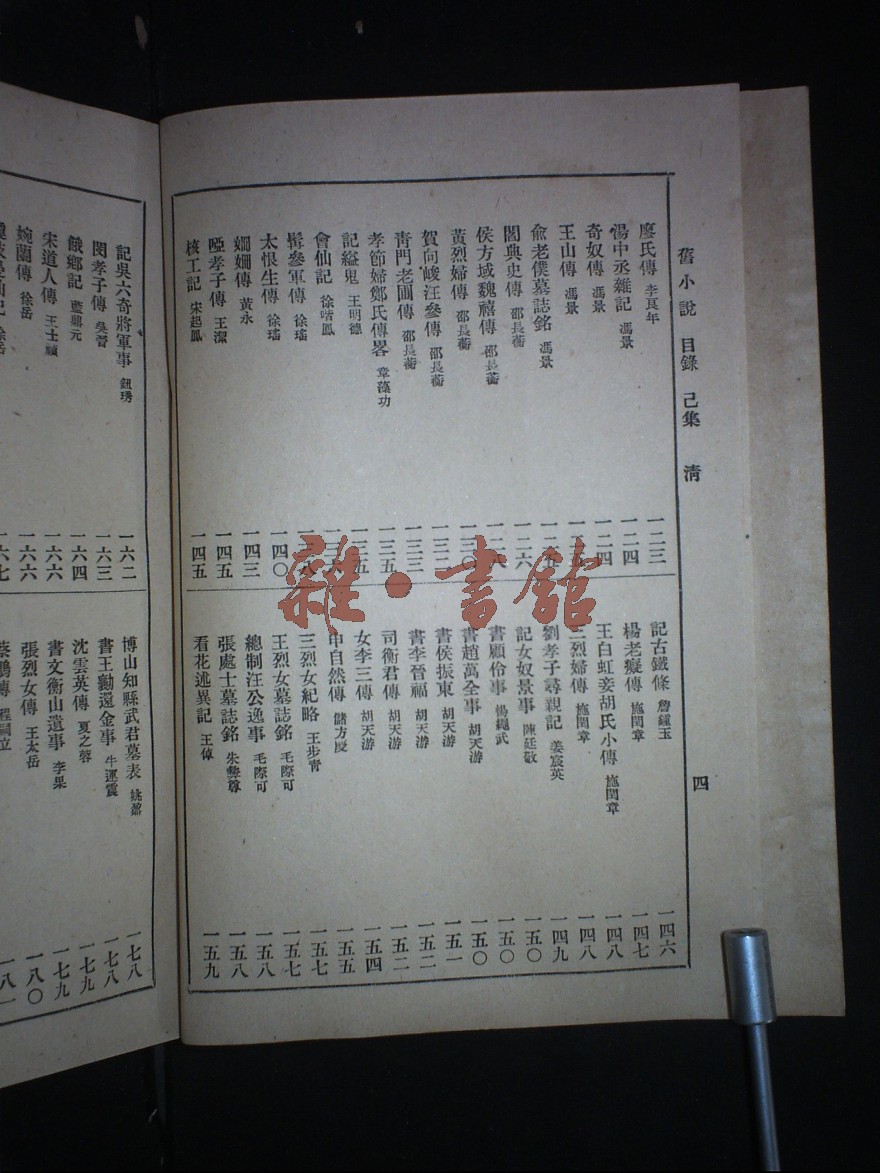 舊小說 目錄 己集 清
四
廖氏傳 李良年 一二三
湯中丞雜記 馮景 一二四
奇奴傳 馮景 一二四
王山傳 馮景
俞老僕墓誌銘 馮景
閻典史傳 邵長蘅 一二六
侯方域魏禧傳 邵長蘅
黃烈婦傳 邵長蘅
賀向峻汪參傳 邵長蘅 一三二
青門老圃傳 邵長蘅 一三三
孝節婦鄭氏傳畧 章藻功 一三五
記縊鬼 王明德
會仙記 徐喈鳳
髯參軍傳 徐瑤
太恨生傳 徐瑤 一四〇
姍姍傳 黃永 一四三
啞孝子傳 王潔 一四五
核工記 宋起鳳 一四五
記古鐵條 詹鍾玉 一四六
楊老癡傳 施閏章 一四七
王白虹妾胡氏小傳 施閏章 一四八
三烈婦傳 施閏章 一四八
劉孝子尋親記 姜宸英 一四九
記女奴景事 陳廷敬 一五〇
書顧伶事 楊繩武 一五〇
書趙萬全事 胡天游 一五〇
書侯振東 胡天游 一五一
書李晉福 胡天游 一五二
司衡君傳 胡天游 一五二
女李三傳 胡天游 一五四
申自然傳 儲方慶 一五五
三烈女紀略 王步青 一五七
王烈女墓誌銘 毛際可 一五七
總制汪公逸事 毛際可 一五八
張處士墓誌銘 朱彝尊 一五八
看花述異記 王倬 一五九
記吳六奇將軍事 鈕琇 一六二
閔孝子傳 吳晉 一六三
餓鄉記 藍鼎元 一六四
宋道人傳 王士禎 一六六
婉蘭傳 徐岳 一六六
一六七
博山知縣武君墓表 姚鼐 一七八
書王勳還金事 牛運震 一七八
沈雲英傳 夏之蓉 一七九
書文衡山遺事 李果 一七九
張烈女傳 王太岳 一八〇
雜·書館